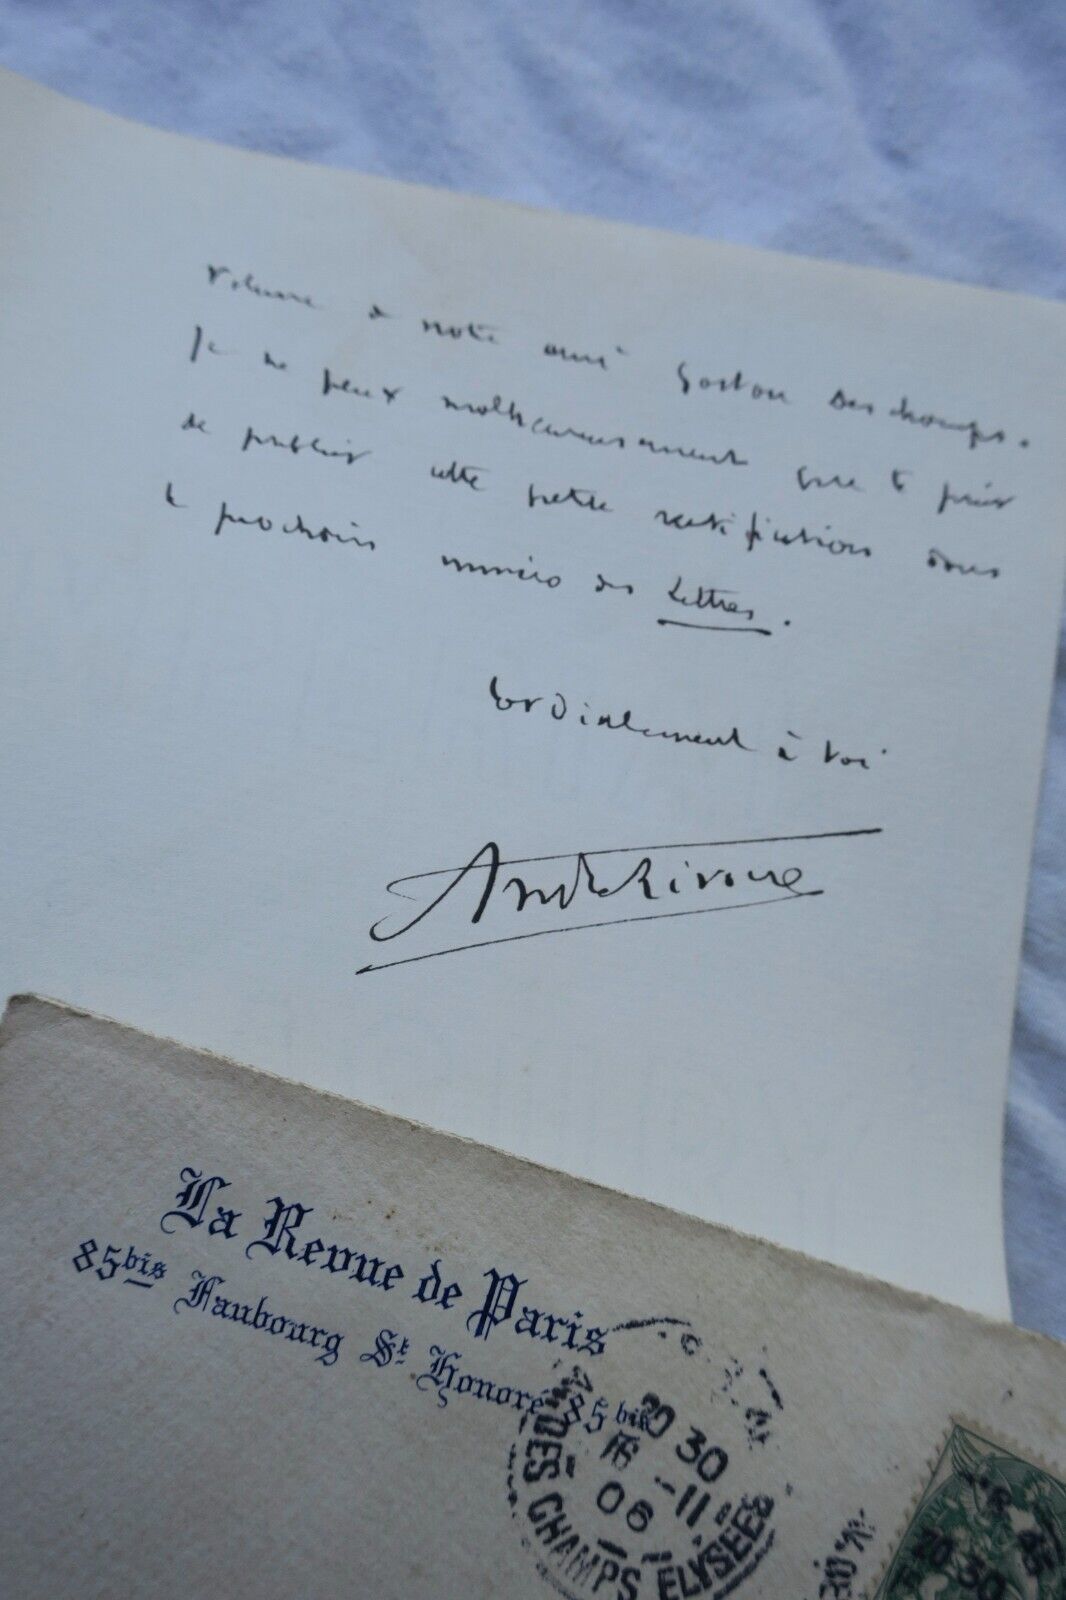 volume de notre ami Gaston Deschamps.
Je ne peux malheureusement que te prier
de publier cette petite rectification dans
le prochain numéro des Lettres.
Cordialement à toi
André Rivoire
La Revue de Paris
85bis Faubourg St Honoré 85bis
20 30
16 -11
06
DES CHAMPS ELYSEES